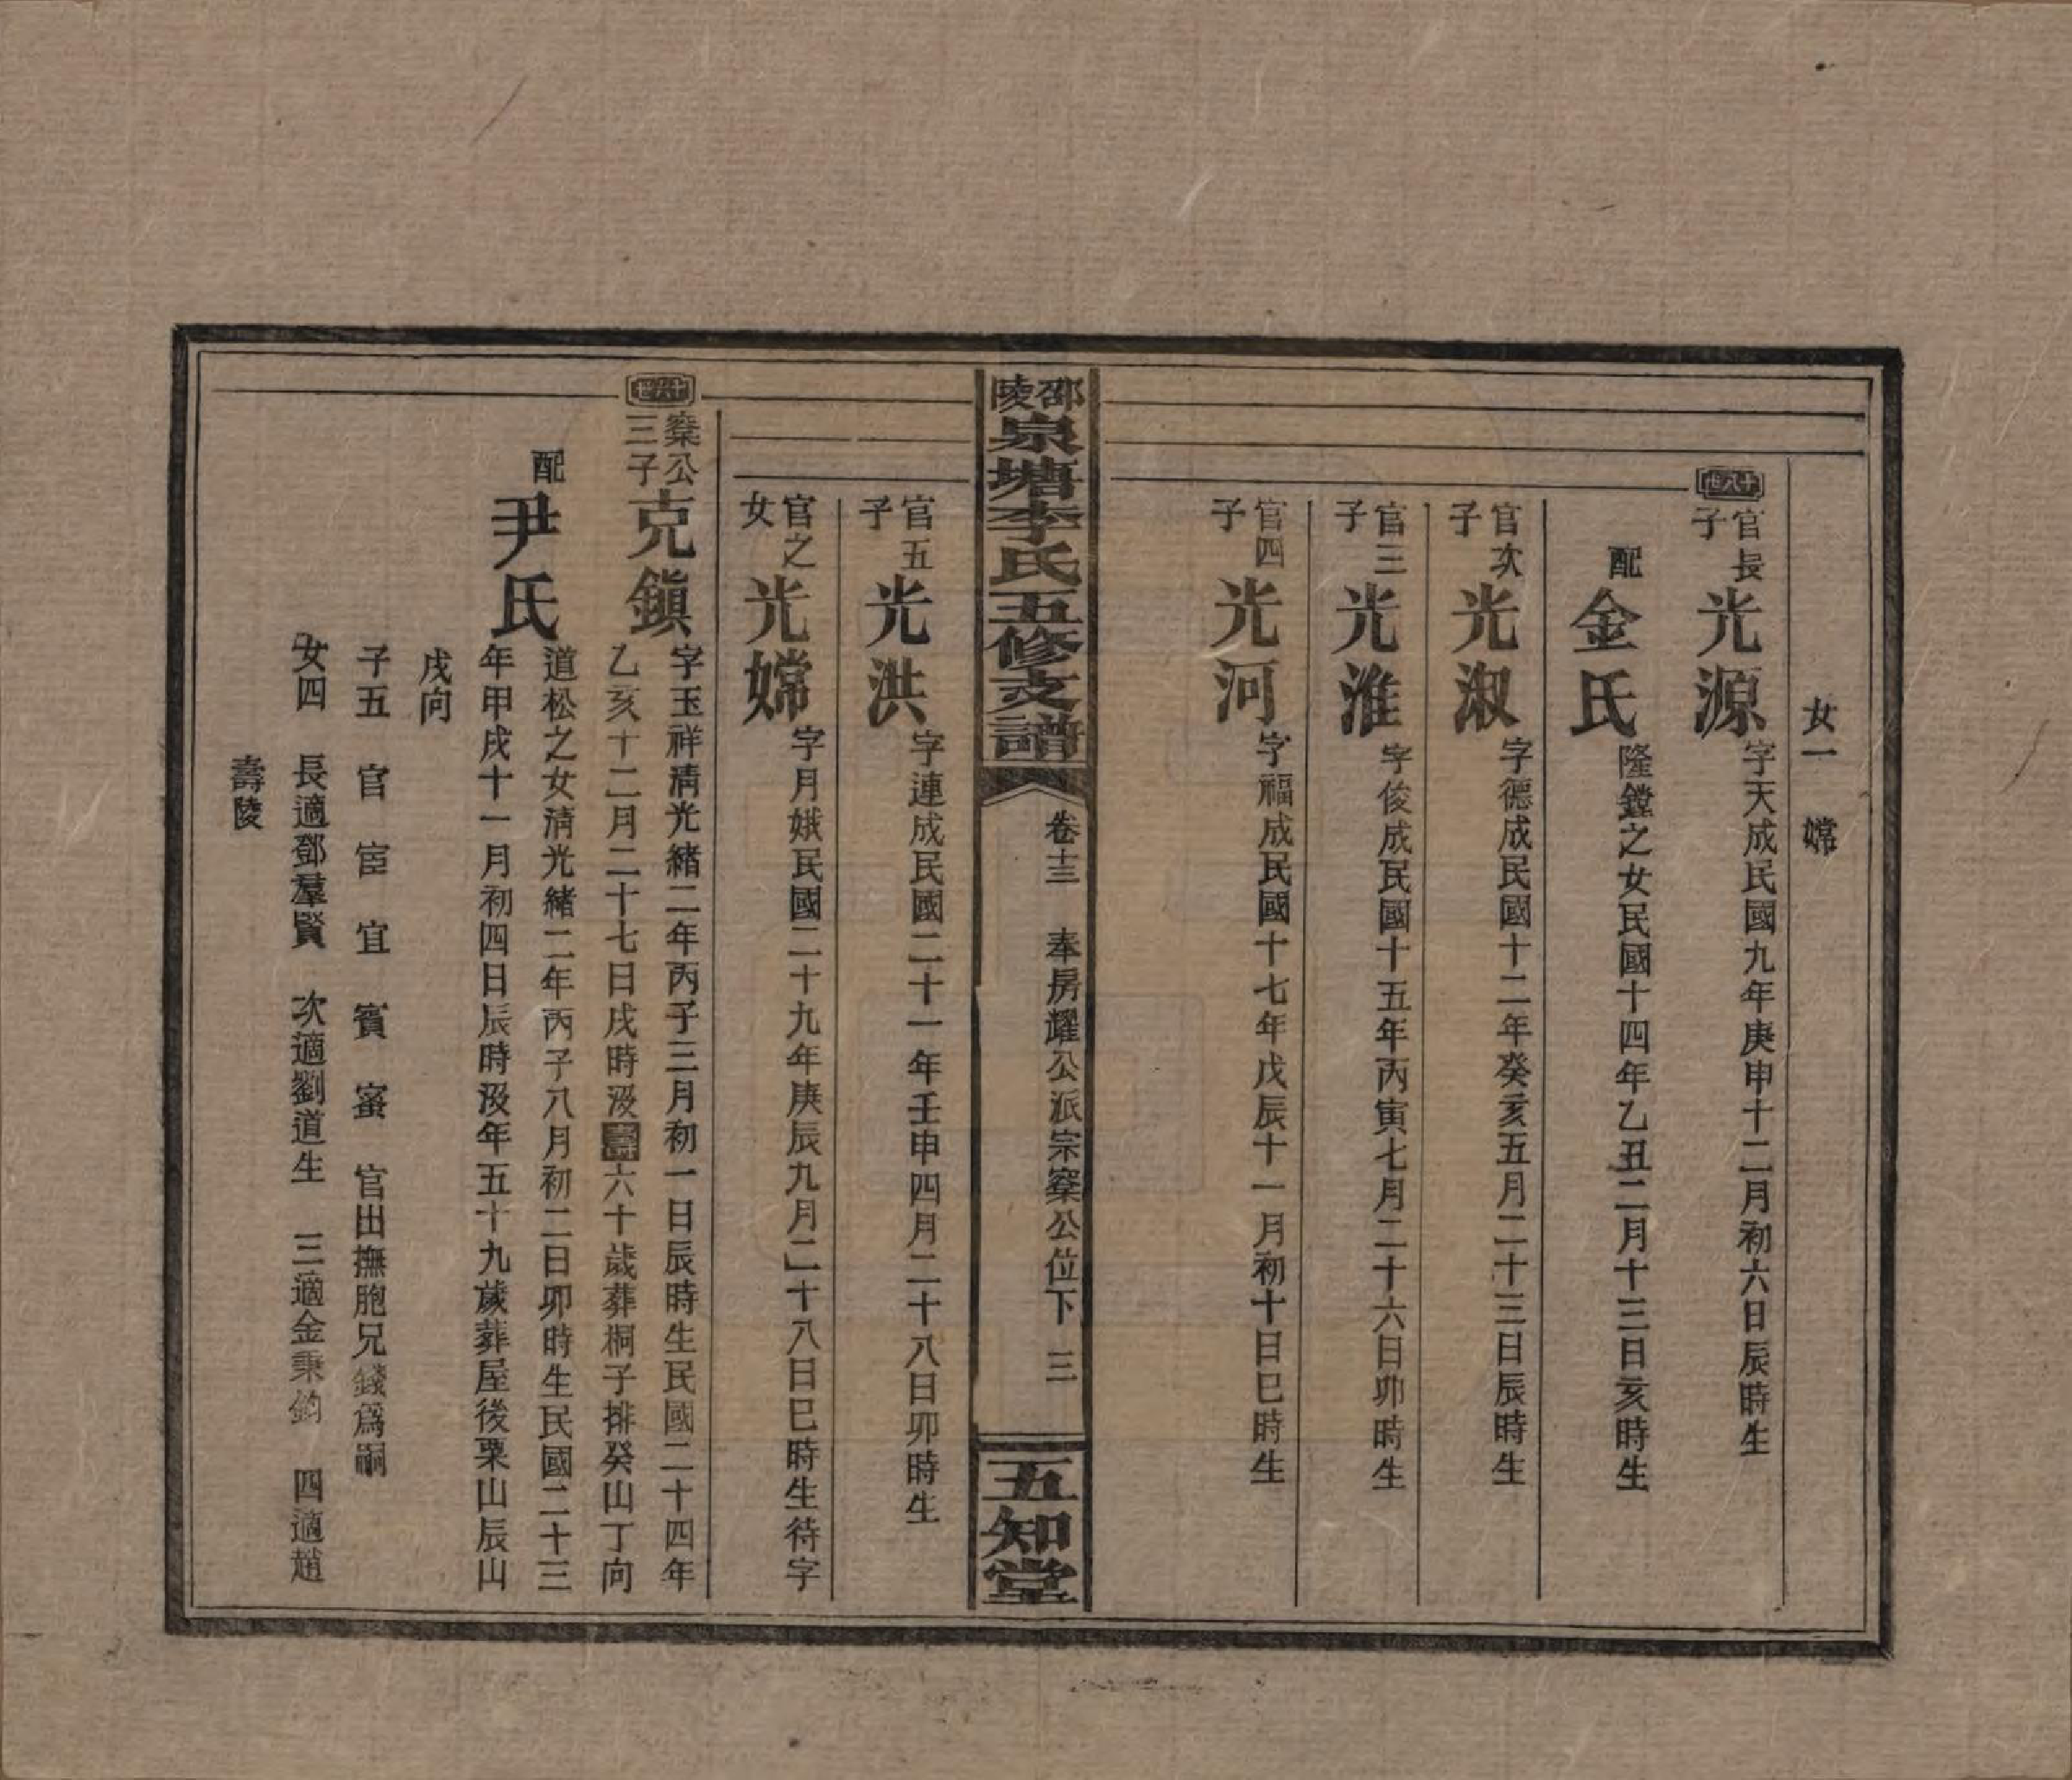 女一 嫦
十八世
官長子
光源 字天成民國九年庚申十二月初六日辰時生
配金氏 隆鏜之女民國十四年乙丑二月十三日亥時生
官次子
光淑 字德成民國十二年癸亥五月二十三日辰時生
官三子
光淮 字俊成民國十五年丙寅七月二十六日卯時生
官四子
光河 字福成民國十七年戊辰十一月初十日巳時生
邵陵泉塘李氏五修支譜 卷十三 奉房耀公派宗寀公位下 三 五知堂
官五子
光洪 字連成民國二十一年壬申四月二十八日卯時生
官之女
光嫦 字月娥民國二十九年庚辰九月二十八日巳時生待字
十六世
公三子
克鎮 字玉祥清光緒二年丙子三月初一日辰時生民國二十四年
乙亥十二月二十七日戌時沒壽六十歲葬桐子排癸山丁向
配尹氏 道松之女清光緒二年丙子八月初二日卯時生民國二十三
年甲戌十一月初四日辰時沒年五十九歲葬屋後栗山辰山
戌向
子五 官 宦 宜 賓 密 官出撫胞兄錢為嗣
女四 長適鄧羣賢 次適劉道生 三適金秉鈞 四適趙
壽陵